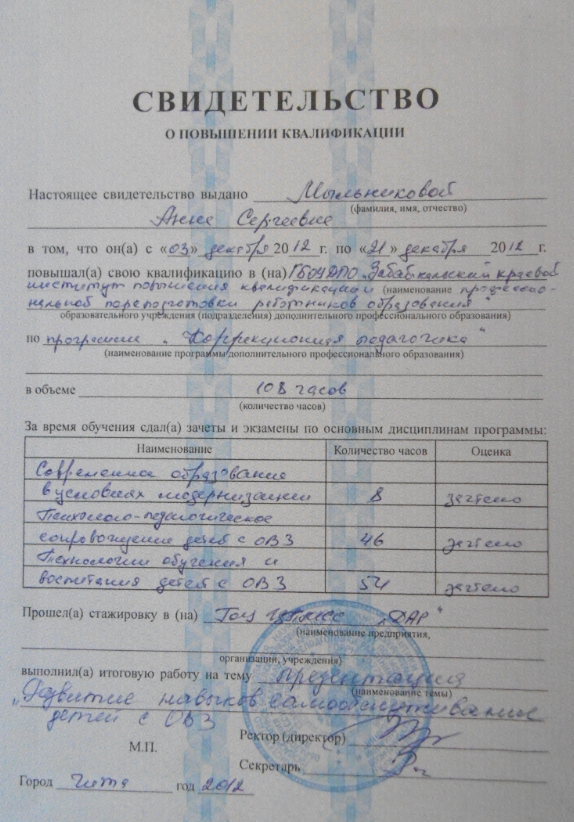 СВИДЕТЕЛЬСТВО
О ПОВЫШЕНИИ КВАЛИФИКАЦИИ
Настоящее свидетельство выдано Мыльниковой
(фамилия, имя, отчество)
Анне Сергеевне
в том, что он(а) с «03» декабря 2012 г. по «21» декабря 2012 г.
повышал(а) свою квалификацию в (на) ГБОУ ДПО „Забайкальский краевой
институт повышения квалификации и (наименование професссио-
нальной переподготовки работников образования"
образовательного учреждения (подразделения) дополнительного профессионального образования)
по программе „Коррекционная педагогика"
(наименование программы дополнительного профессионального образования)
в объеме 108 часов
(количество часов)
За время обучения сдал(а) зачеты и экзамены по основным дисциплинам программы:
Наименование Количество часов Оценка
Современное образование
в условиях модернизации 8 зачтено
Психолого-педагогическое
сопровождение детей с ОВЗ 46 зачтено
Технологии обучения и
воспитания детей с ОВЗ 54 зачтено
Прошел(а) стажировку в (на) „ДАР"
(наименование предприятия,
организации, учреждения)
выполнил(а) итоговую работу на тему презентация
(наименование темы)
„Развитие навыков самообслуживание
детей с ОВЗ
Ректор (директор)
М.П.
Секретарь
Город Чита год 2012